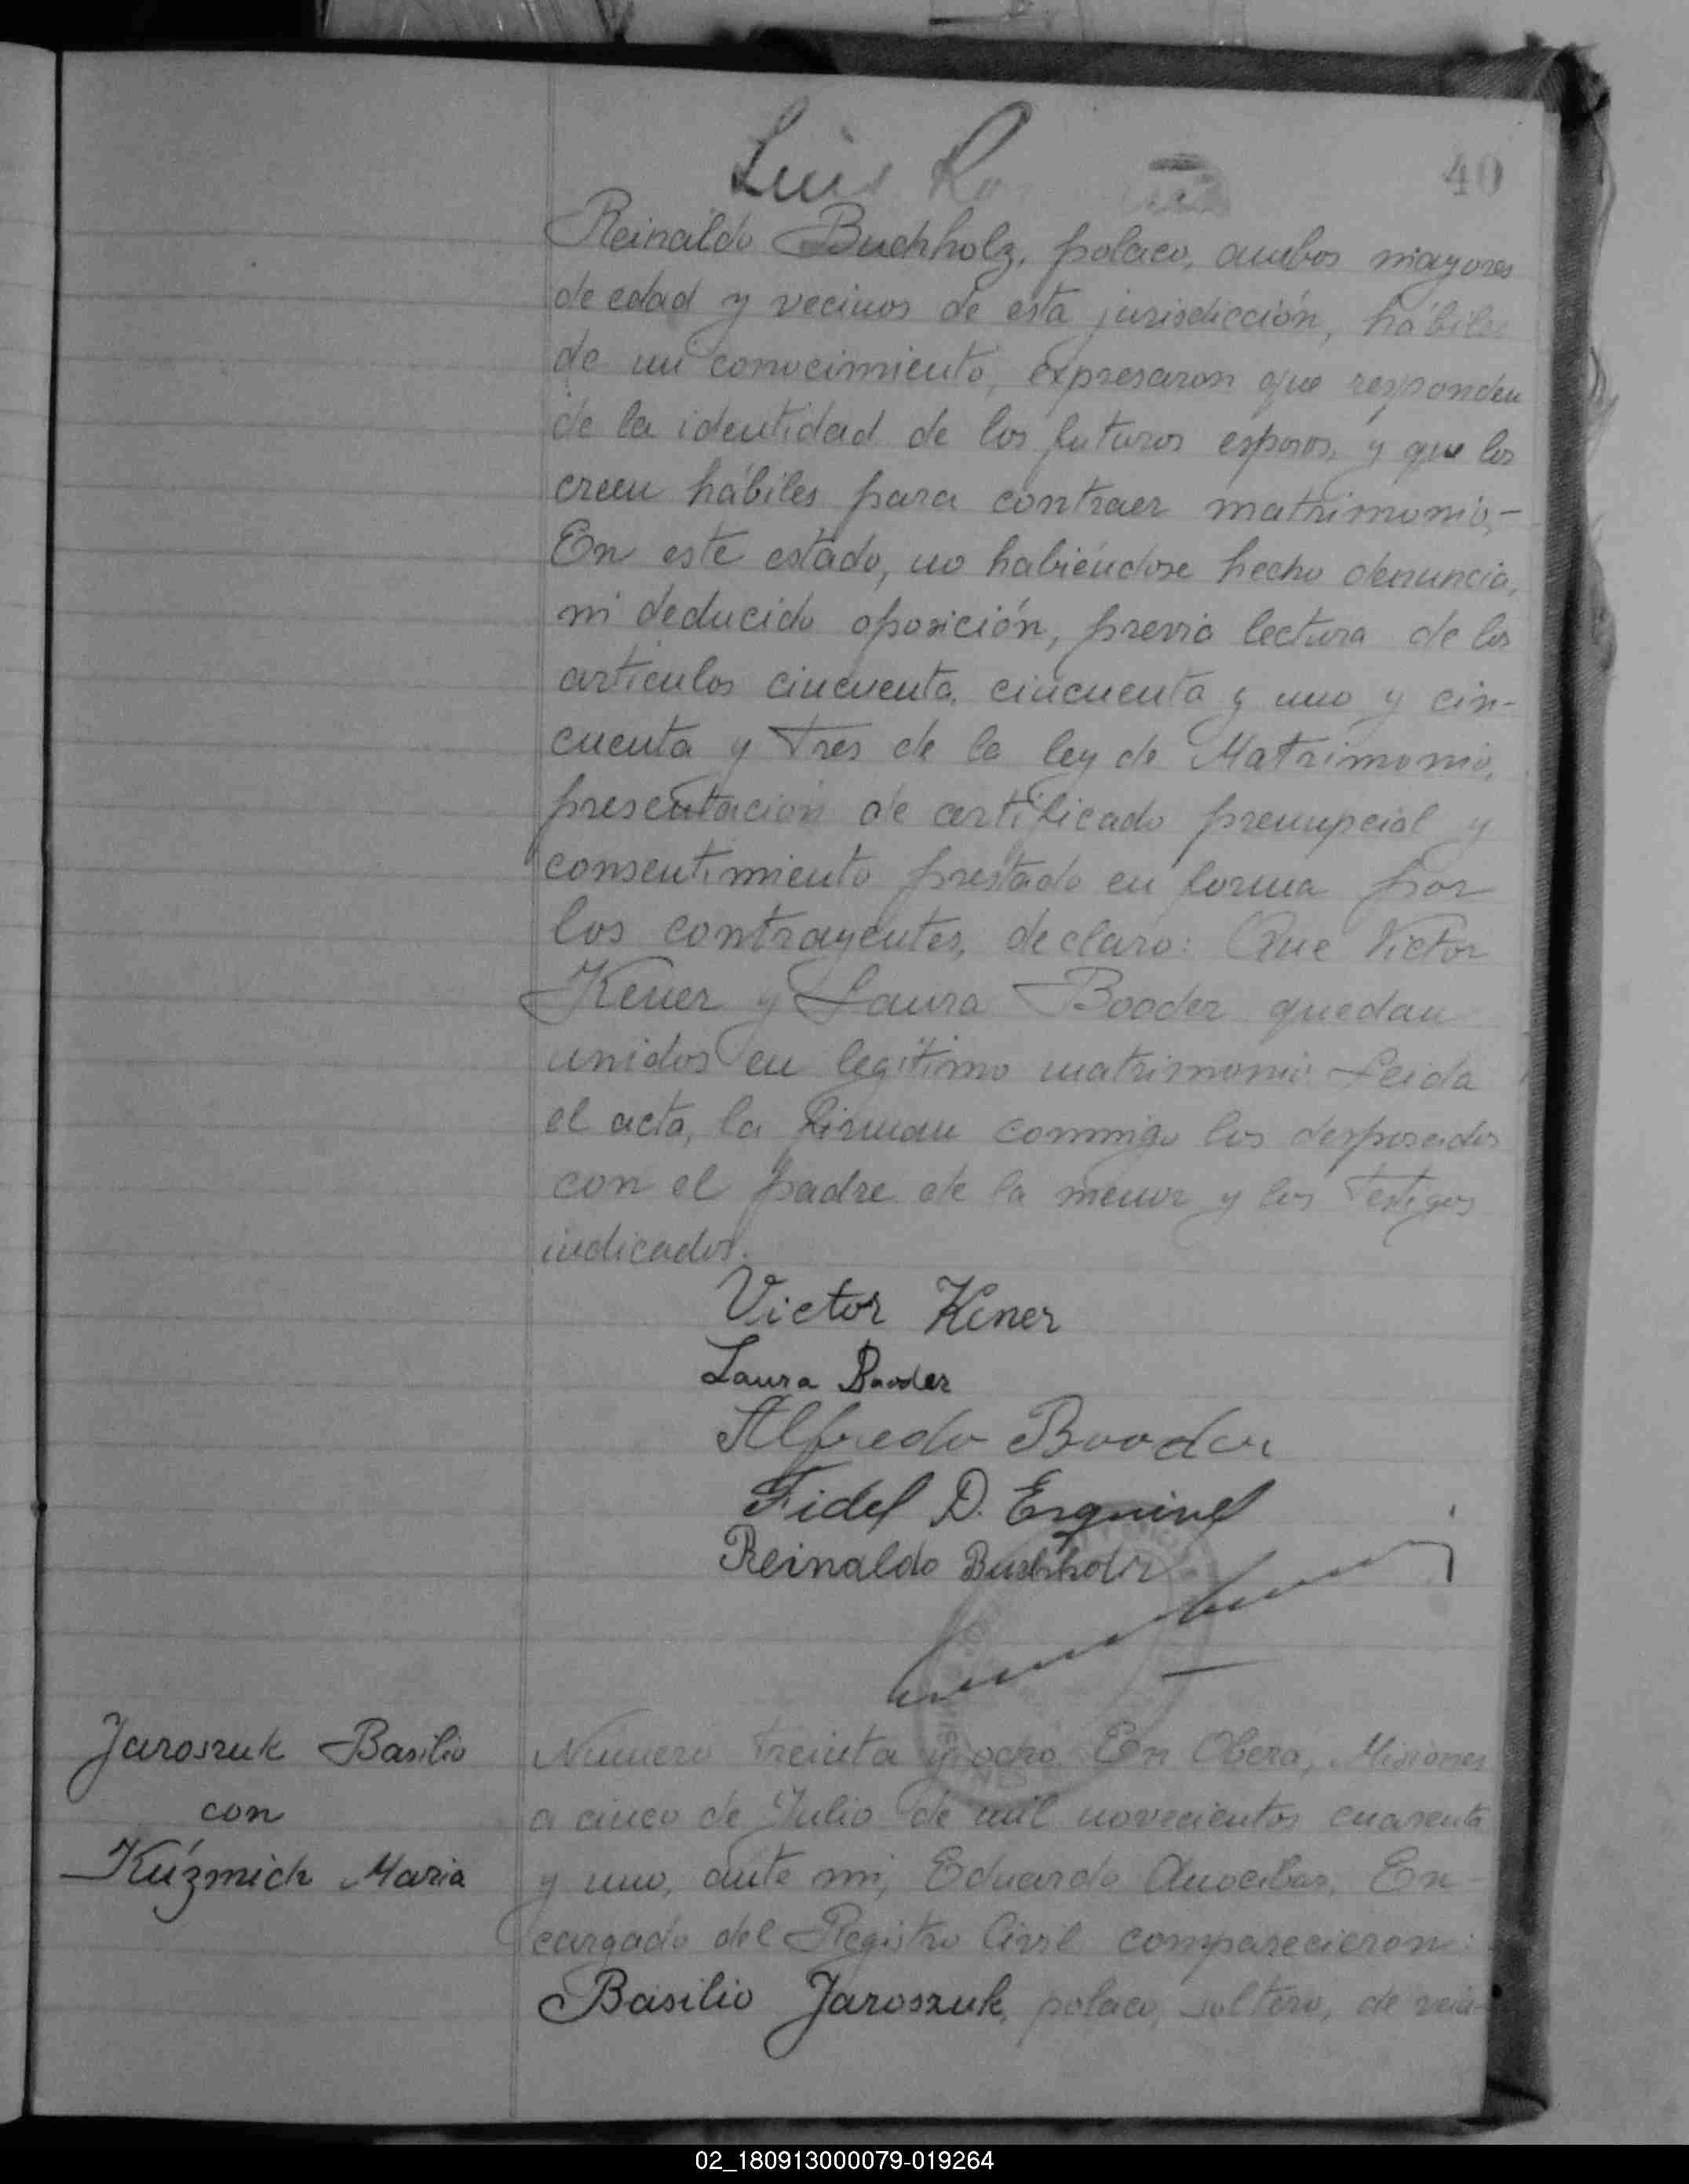 Luis
40
Reinaldo Buchholz, polaco, ambos mayores
de edad y vecinos de esta jurisdicción, hábiles
de mi conocimiento, expresaron que responden
de la identidad de los futuros esposos, y que los
creen hábiles para contraer matrimonio,-
En este estado, no habiéndose hecho denuncia,
ni deducido oposición, previa lectura de los
artículos cincuenta, cincuenta y uno y cin-
cuenta y tres de la ley de Matrimonio,
presentación de certificado prenupcial y
consentimiento prestado en forma por
los contrayentes, declaro: Que Victor
Kener y Laura Booder quedan
unidos en legítimo matrimonio. Leida
el acta, la firman conmigo los desposados
con el padre de la menor y los testigos
indicados.
Victor Kener
Laura Booder
Alfredo Booder
Fidel D. Esquivel
Reinaldo Buchholz
Jaroszuk Basilio
con
Kúzmich Maria
Número treinta y ocho. En Oberá, Misiones
a cinco de Julio de mil novecientos cuarenta
y uno, ante mi, Eduardo En-
cargado del Registro Civil comparecieron:
Basilio Jaroszuk, polaco, soltero, de vein-
02_180913000079-019264